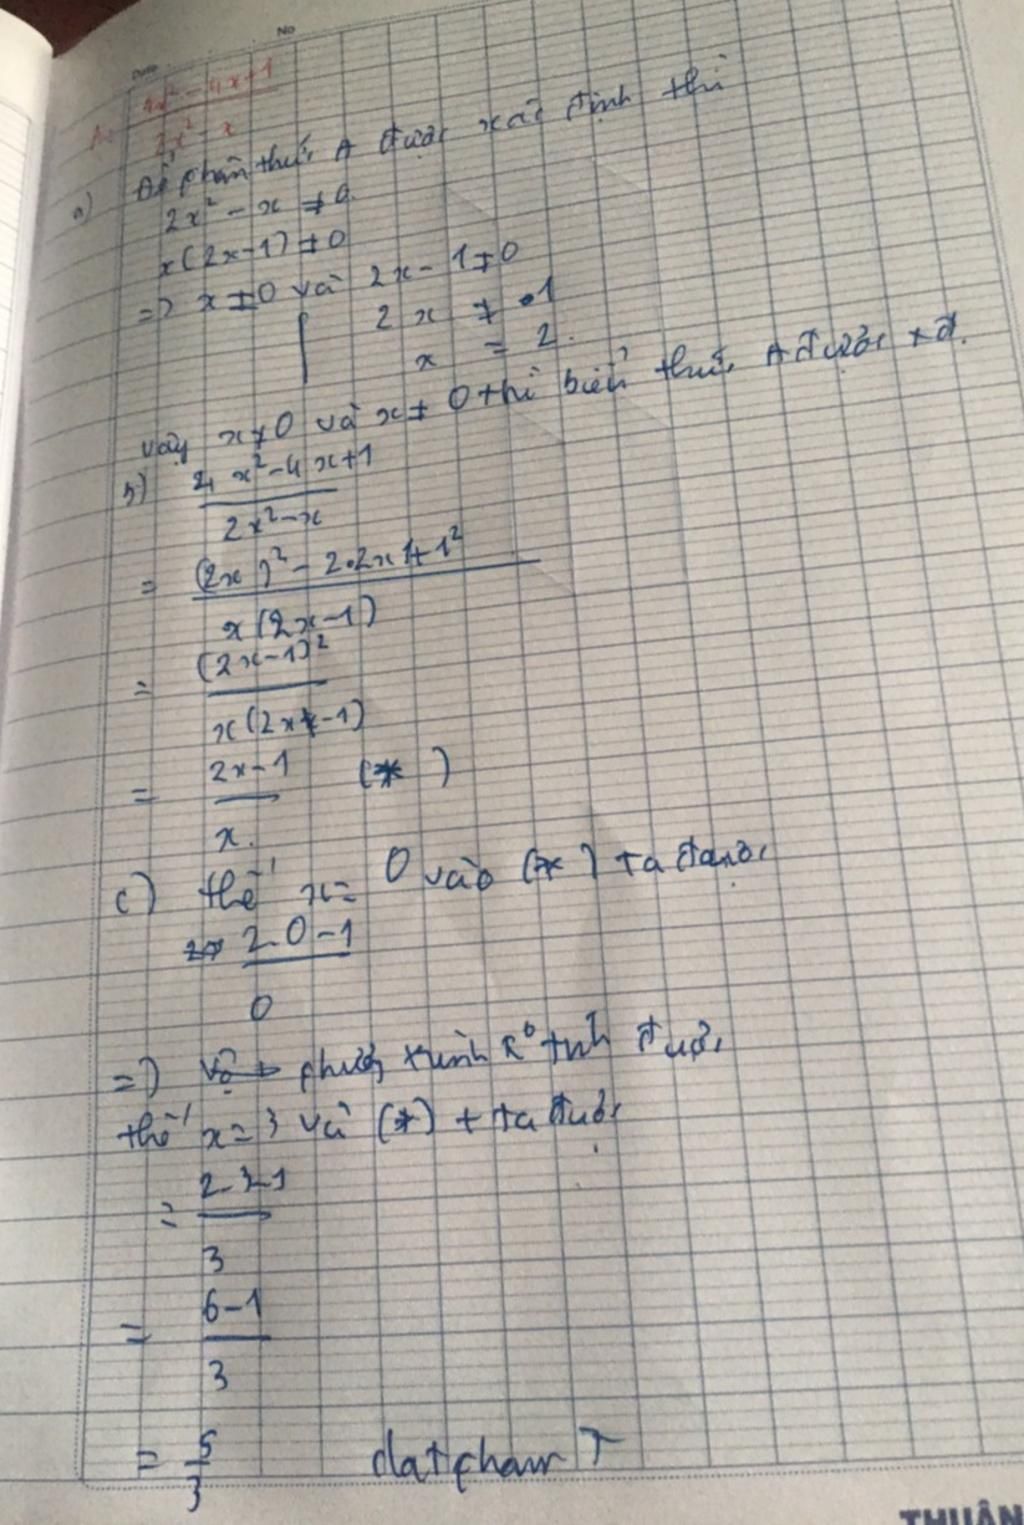 No
Date
A= 4x² - 4x+1
2x² - x
a) Để phân thức A được xác định thì
2x² - x ≠ 0
x(2x-1) ≠ 0
=> x ≠ 0 và 2x - 1 ≠ 0
2x ≠ 1
x = 2.
vậy x ≠ 0 và x ≠ 0 thì biểu thức A được xđ.
b) 4x² - 4x+1
2x² - x
= (2x)² - 2.2x1+1²
x(2x-1)
= (2x-1)²
x(2x-1)
= 2x-1 (*)
x.
c) thế x= 0 vào (*) ta được
2.0-1
0
=> phương trình k° tính được
thế x=3 và (*) ta được
= 2.3-1
3
= 6-1
3
= 5
3
datphamT
THUẬN